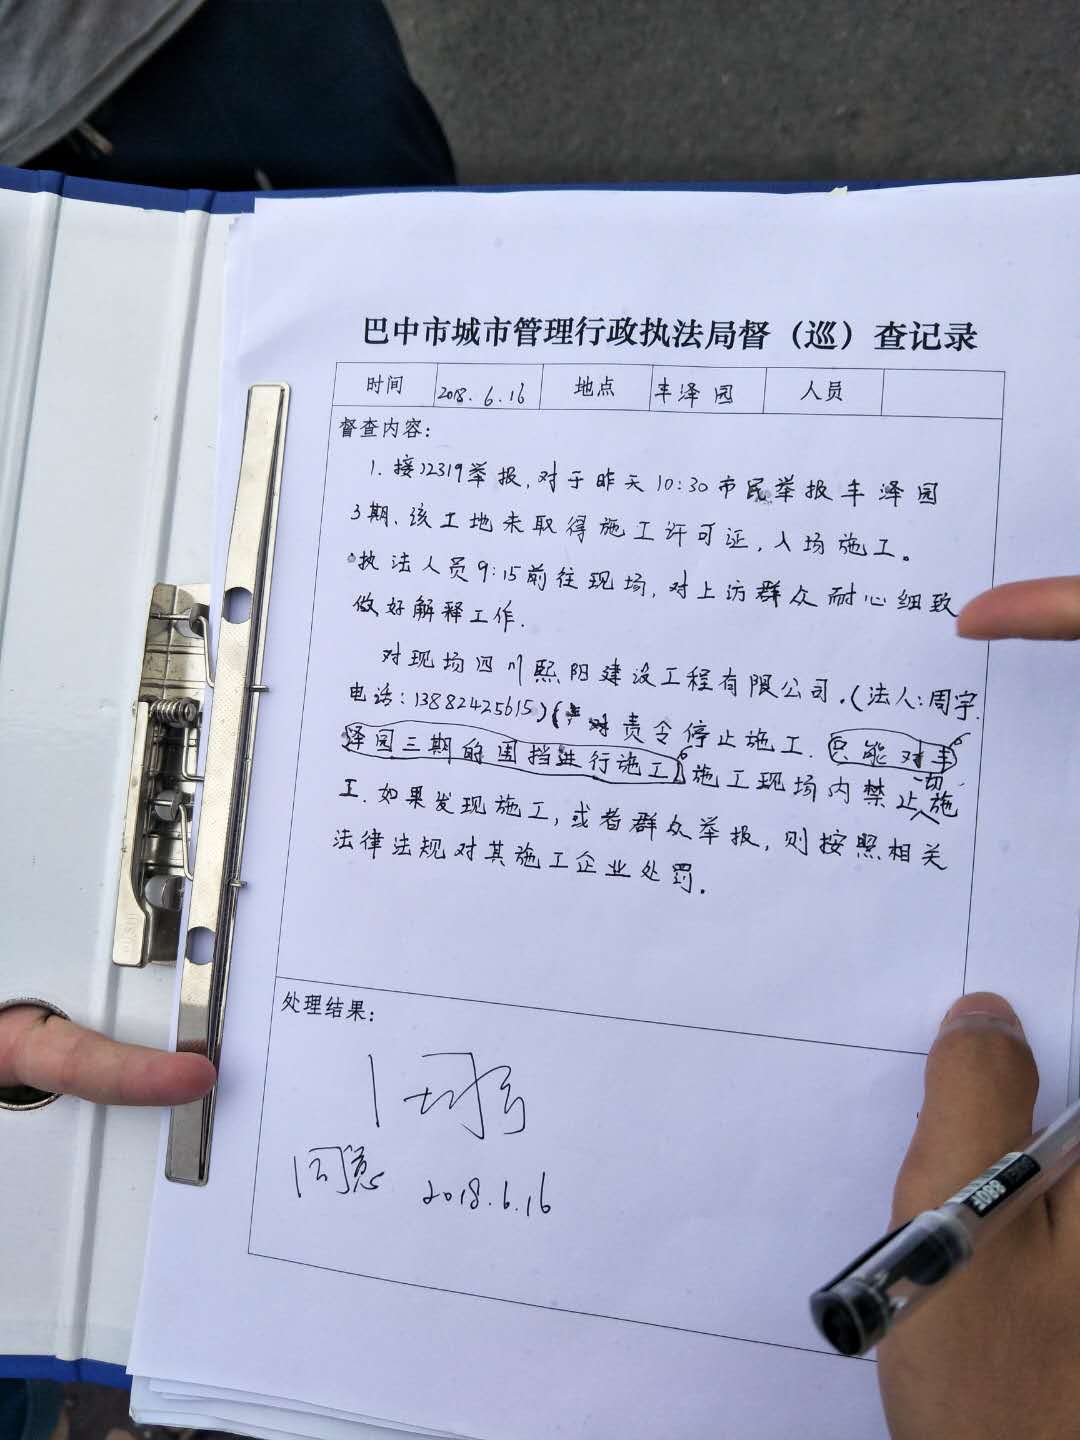 巴中市城市管理行政执法局督（巡）查记录
时间 2018.6.16 地点 丰泽园 人员
督查内容：
1.接12319举报，对于昨天10:30市民举报丰泽园
3期、该工地未取得施工许可证，入场施工。
执法人员9:15前往现场，对上访群众耐心细致
做好解释工作.
对现场四川熙阳建设工程有限公司.(法人:周宇.
电话:13882425615)(对责令停止施工.只能对丰
泽园三期的围挡进行施工.施工现场内禁止一切施
工.如果发现施工,或者群众举报,则按照相关
法律法规对其施工企业处罚.
处理结果：
同意 2018.6.16